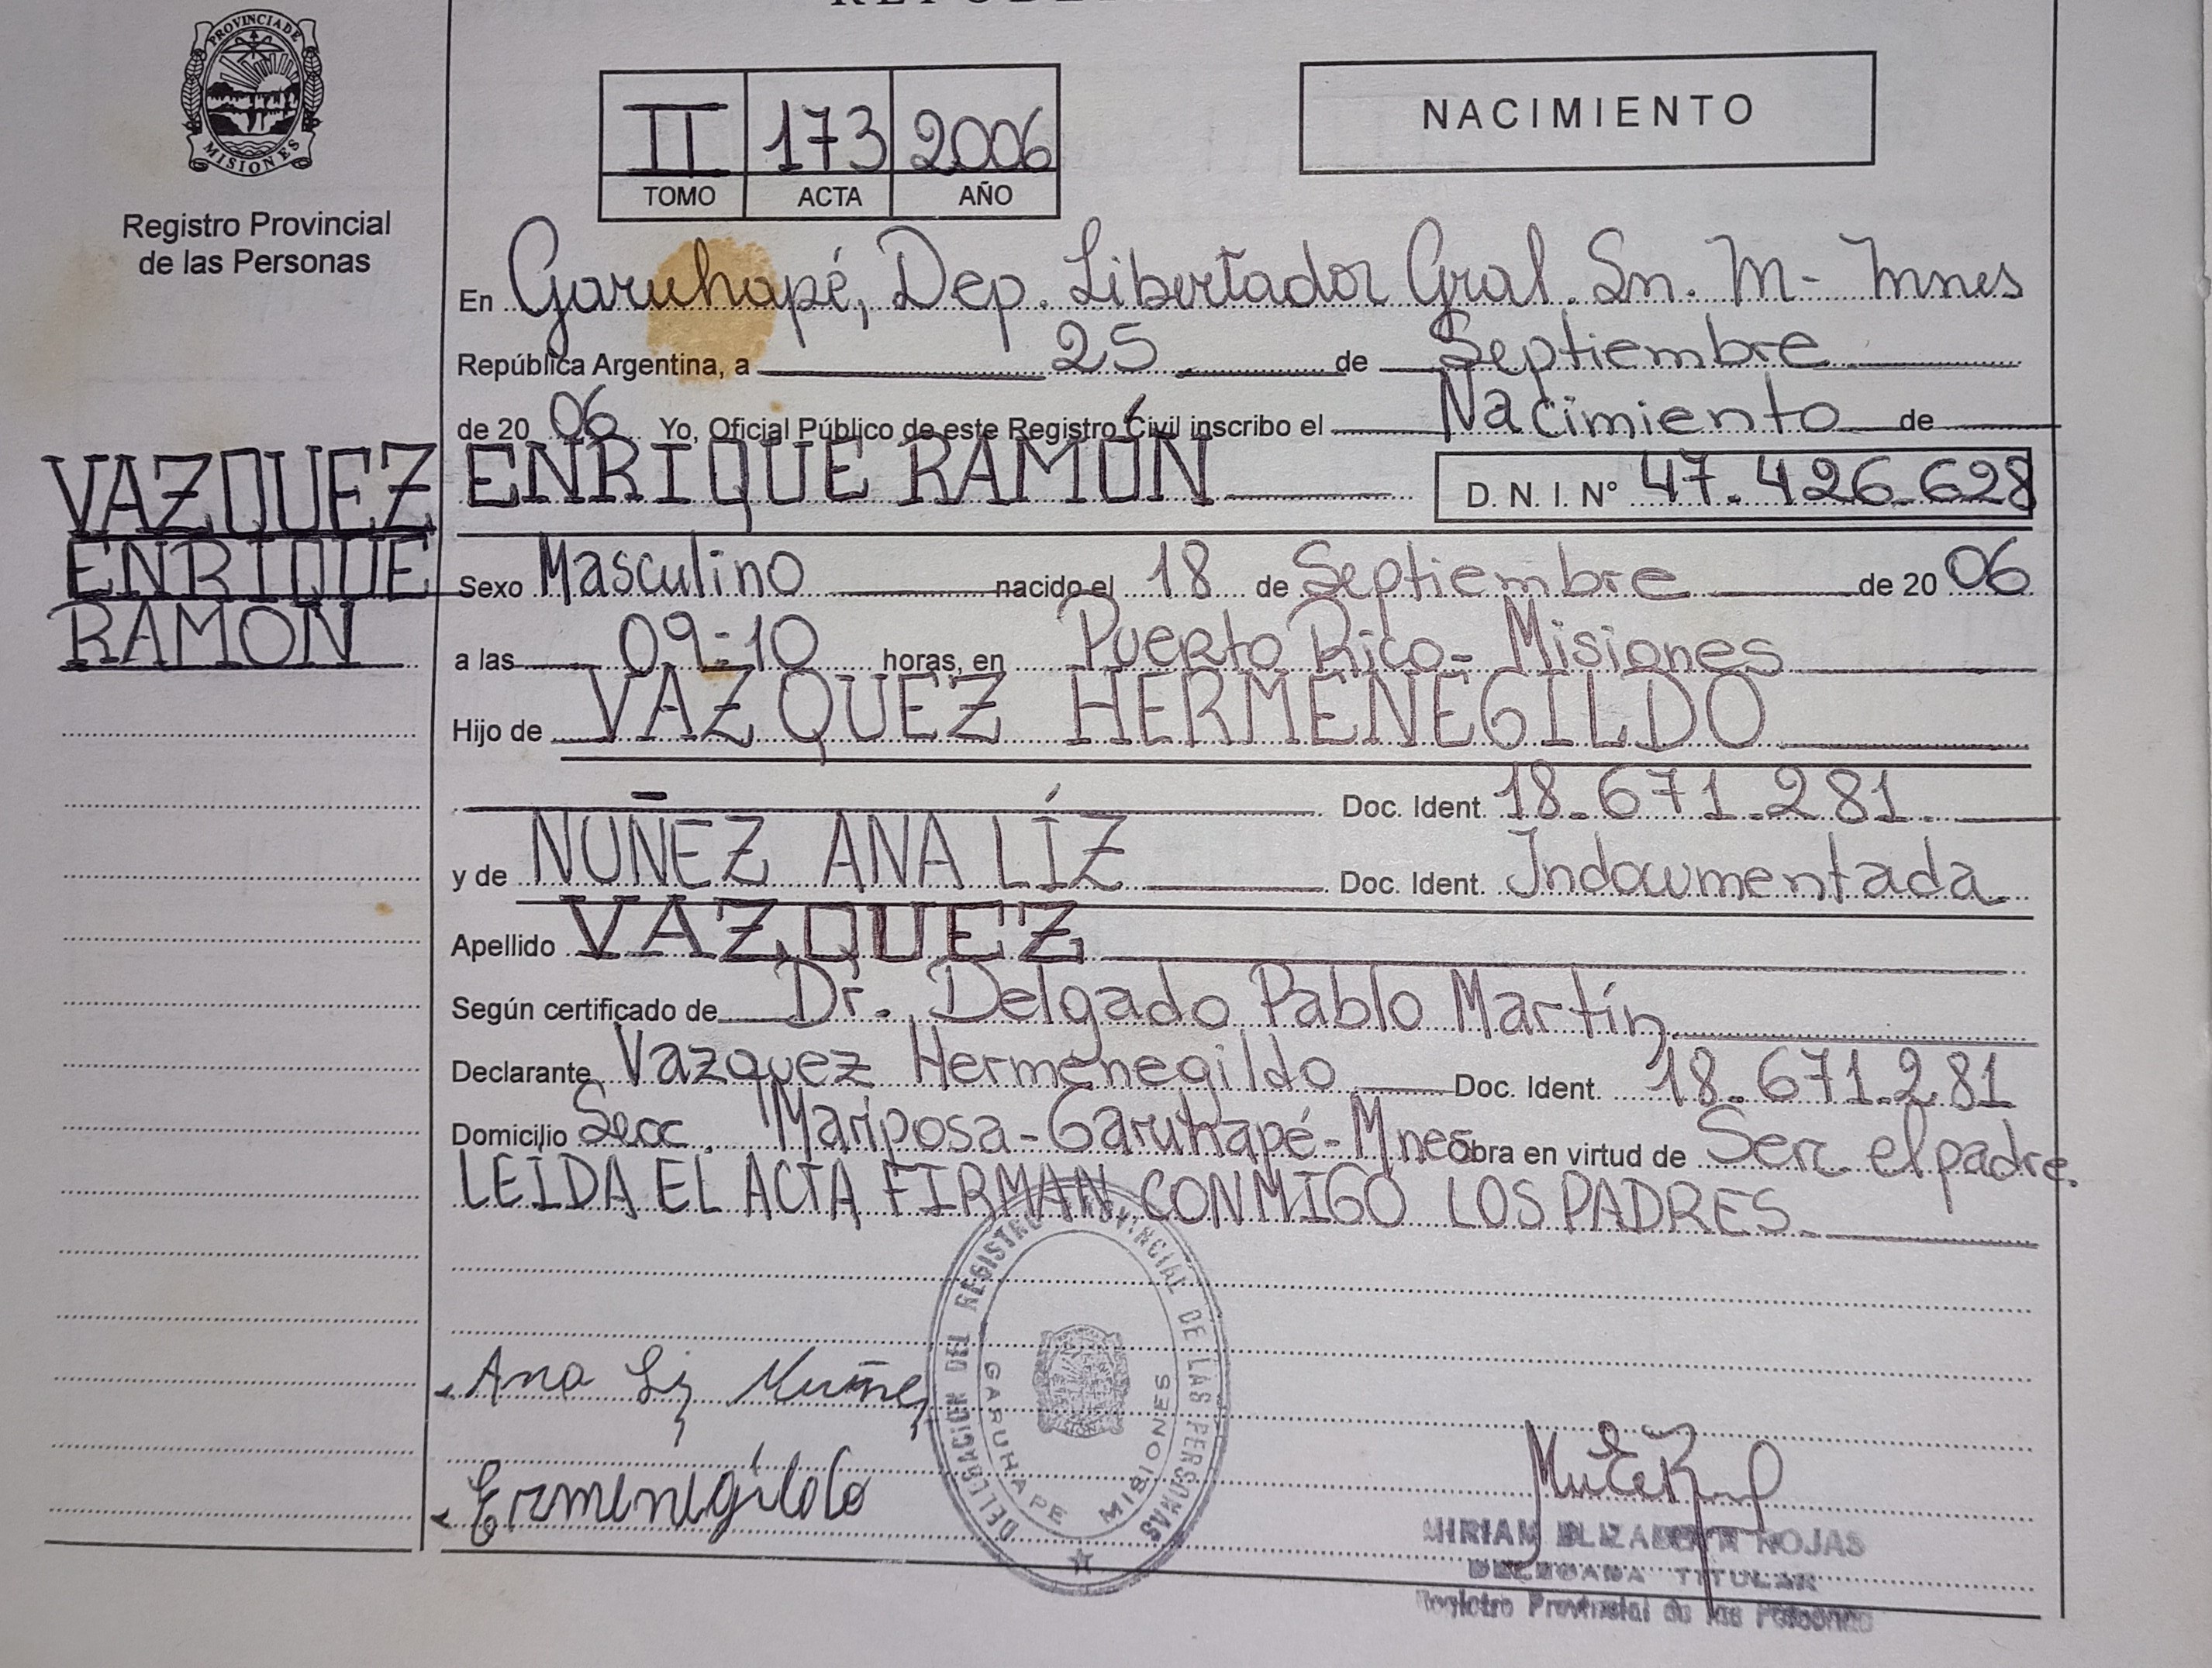 PROVINCIA DE
MISIONES
Registro Provincial
de las Personas
VAZQUEZ
ENRIQUE
RAMÓN
II 173 2006
TOMO ACTA AÑO
NACIMIENTO
En Garuhapé, Dep. Libertador Gral. Sn. M- Mnes
República Argentina, a 25 de Septiembre
de 20 06 Yo, Oficial Público de este Registro Civil inscribo el Nacimiento de
ENRIQUE RAMÓN D. N. I. N° 47.426.628
Sexo Masculino nacido el 18 de Septiembre de 20 06
a las 09:10 horas, en Puerto Rico- Misiones
Hijo de VAZQUEZ HERMENEGILDO
Doc. Ident. 18.671.281
y de NUÑEZ ANA LÍZ Doc. Ident. Indocumentada
Apellido VAZQUEZ
Según certificado de Dr. Delgado Pablo Martín
Declarante Vazquez Hermenegildo Doc. Ident. 18.671.281
Domicilio Secc. Mariposa-Garuhapé-Mnes obra en virtud de Ser el padre.
LEIDA EL ACTA FIRMAN CONMIGO LOS PADRES
DELEGACION DEL REGISTRO PROVINCIAL DE LAS PERSONAS
GARUHAPE MISIONES
Ana Liz Nuñez
Ermenegildo
MIRIAM ELIZABETH ROJAS
DELEGADA TITULAR
Registro Provincial de las Personas